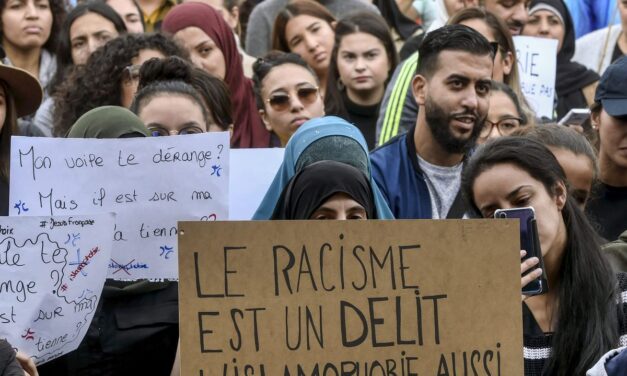 Mon voile te dérange ?
Mais il est sur ma
à tienne
#JeSuisFrançaise
le te
range ?
t sur ma
tienne !
LE RACISME
EST UN DELIT
L'ISLAMOPHOBIE AUSSI